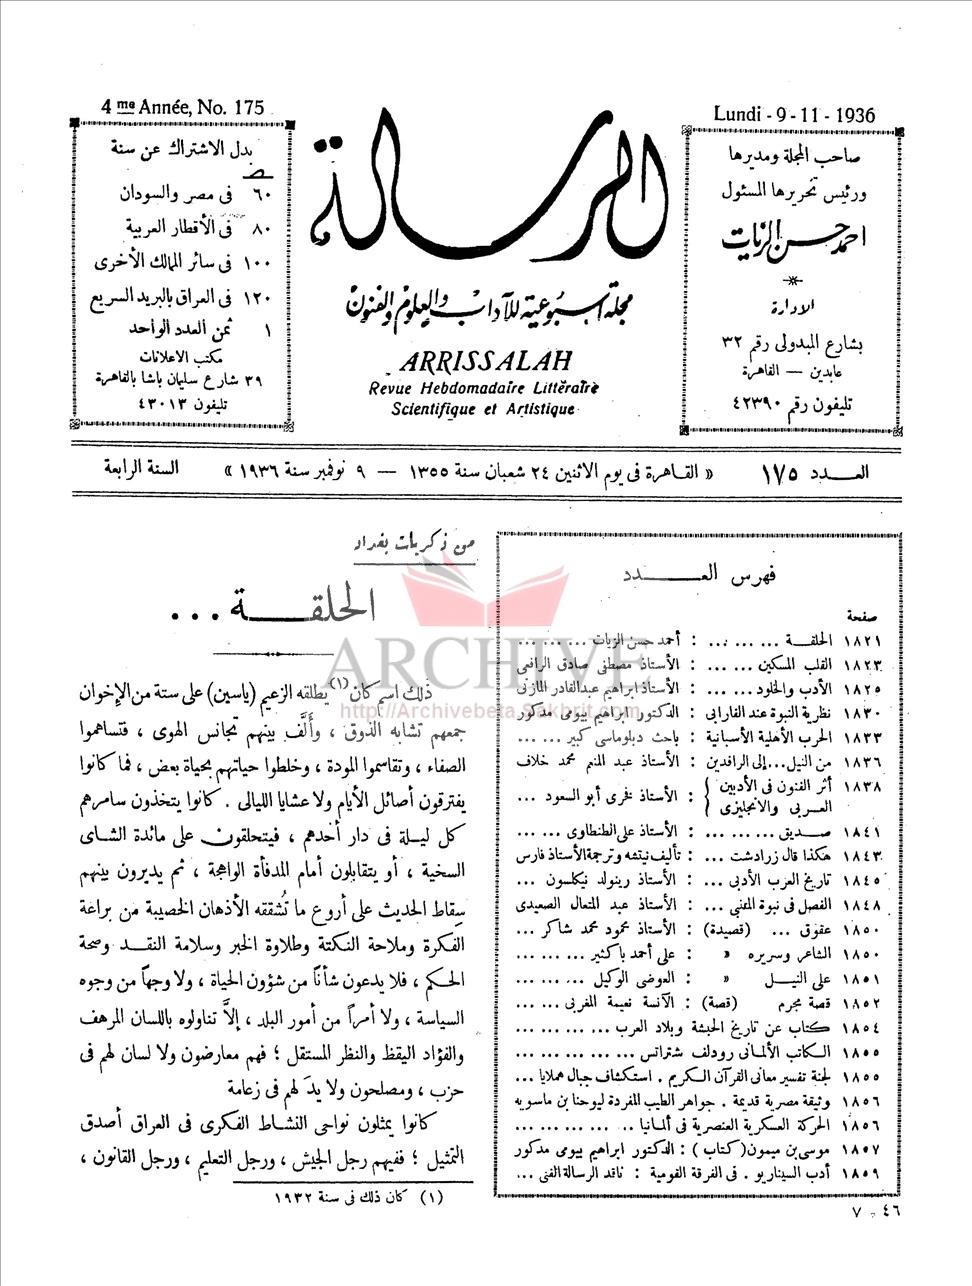 4 me Année, No. 175
Lundi - 9 - 11 - 1936
بدل الاشتراك عن سنة
ص
٦٠ فى مصر والسودان
٨٠ فى الأقطار العربية
١٠٠ فى سائر الممالك الأخرى
١٢٠ فى العراق بالبريد السريع
١ ثمن العدد الواحد
مكتب الاعلانات
٣٩ شارع سليمان باشا بالقاهرة
تليفون ٤٣٠١٣
الرسالة
مجلة أسبوعية للآداب والعلوم والفنون
ARRISSALAH
Revue Hebdomadaire Littéraire
Scientifique et Artistique
صاحب المجلة ومديرها
ورئيس تحريرها المسئول
احمد حسن الزيات
الادارة
بشارع المبدولى رقم ٣٢
عابدين — القاهرة
تليفون رقم ٤٢٣٩٠
العـــدد ١٧٥
« القاهرة فى يوم الاثنين ٢٤ شعبان سنة ١٣٥٥ — ٩ نوفمبر سنة ١٩٣٦ »
السنة الرابعة
فهرس العـــدد
صفحة
١٨٢١ الحلقة ... ... ... : أحمد حسن الزيات ... ... ...
١٨٢٣ القلب المسكين ... ... : الأستاذ مصطفى صادق الرافعى
١٨٢٥ الأدب والخلود ... ... : الأستاذ ابراهيم عبدالقادر المازنى
١٨٣٠ نظرية النبوة عند الفارابى : الدكتور ابراهيم بيومى مدكور
١٨٣٣ الحرب الأهلية الأسبانية : باحث دبلوماسى كبير ... ...
١٨٣٦ من النيل...إلى الرافدين : الأستاذ عبد المنعم محمد خلاف
١٨٣٨ أثر الفنون فى الأدبين العربى والانجليزى : الأستاذ فخرى أبو السعود ...
١٨٤١ صـديق ... ... ... : الأستاذ على الطنطاوى ... ...
١٨٤٣ هكذا قال زرادشت ... : تأليف نيتشه وترجمة الأستاذ فارس
١٨٤٥ تاريخ العرب الأدبى ... : الأستاذ رينولد نيكلسون ... ...
١٨٤٨ الفصل فى نبوة المتنبى ... : الأستاذ عبد المتعال الصعيدى
١٨٥٠ عقوق ... (قصيدة) : الأستاذ محمود محمد شاكر ... ...
١٨٥٠ الشاعر وسريره « : على أحمد باكثير ... ... ...
١٨٥١ على النيـــل « : العوضى الوكيل ... ... ...
١٨٥٢ قصة مجرم (قصة) : الآنسة نعيمة المغربى ... ...
١٨٥٤ كتاب عن تاريخ الحبشة وبلاد العرب ... ... ... ...
١٨٥٥ الكاتب الألمانى رودلف شتراتس ... ... ... ... ...
١٨٥٥ لجنة تفسير معانى القرآن الكريم . استكشاف جبال هملايا ...
١٨٥٦ وثيقة مصرية قديمة . جواهر الطيب المفردة ليوحنا بن ماسويه
١٨٥٦ الحركة العسكرية العنصرية فى ألمانيا ... ... ... ... ..
١٨٥٧ موسى بن ميمون (كتاب) : الدكتور ابراهيم بيومى مدكور
١٨٥٩ أدب السيناريو . فى الفرقة القومية : ناقد الرسالة الفنى ...
٤٦ - ٧
من ذكريات بغداد
الحلقـــة ...
ذلك اسم كان (١) يطلقه الزعيم (ياسين) على ستة من الإخوان
جمعهم تشابه الذوق ، وأَلَّف بينهم تجانس الهوى ، فتساهموا
الصفاء ، وتقاسموا المودة ، وخلطوا حياتهم بحياة بعض ، فما كانوا
يفترقون أصائل الأيام ولا عشايا الليالى . كانوا يتخذون سامرهم
كل ليلة فى دار أحدهم ، فيتحلقون على مائدة الشاى
السخية ، أو يتقابلون أمام المدفأة الواهجة ، ثم يديرون بينهم
سِقاط الحديث على أروع ما تُشققه الأذهان الخصيبة من براعة
الفكرة وملاحة النكتة وطلاوة الخبر وسلامة النقد وصحة
الحكم ، فلا يدعون شأناً من شؤون الحياة ، ولا وجهاً من وجوه
السياسة ، ولا أمراً من أمور البلد ، إلاَّ تناولوه باللسان المرهف
والفؤاد اليقظ والنظر المستقل ؛ فهم معارضون ولا لسان لهم فى
حزب ، ومصلحون ولا يدَ لهم فى زعامة
كانوا يمثلون نواحى النشاط الفكرى فى العراق أصدق
التمثيل ؛ ففيهم رجل الجيش ، ورجل التعليم ، ورجل القانون ،
(١) كان ذلك فى سنة ١٩٣٢
ARCHIVE
http://Archivebeta.Sakhrit.com